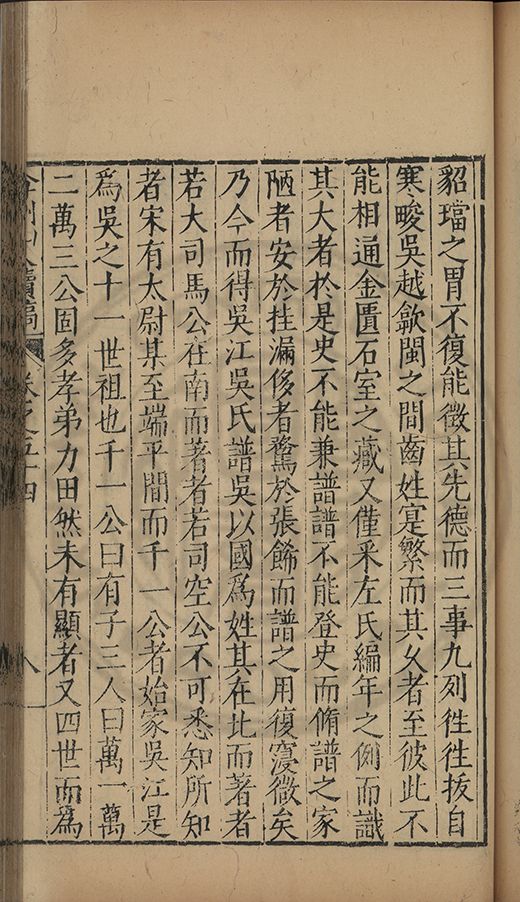 貂璫之胄不復能徵其先德而三事九列徃徃拔自
寒畯吳越歙閩之間齒姓寔繁而其乆者至彼此不
能相通金匱石室之藏又僅采左氏編年之例而識
其大者扵是史不能兼譜譜不能登史而脩譜之家
陋者安於挂漏侈者騖於張餙而譜之用復寖微矣
乃今而得吳江吳氏譜吳以國爲姓其在北而著者
若大司馬公在南而著者若司空公不可悉知所知
者宋有太尉某至端平間而千一公者始家吳江是
爲吳之十一世祖也千一公曰有子三人曰萬一萬
二萬三公固多孝弟力田然未有顯者又四世而爲
弇州山人續稿 卷之五十四 八